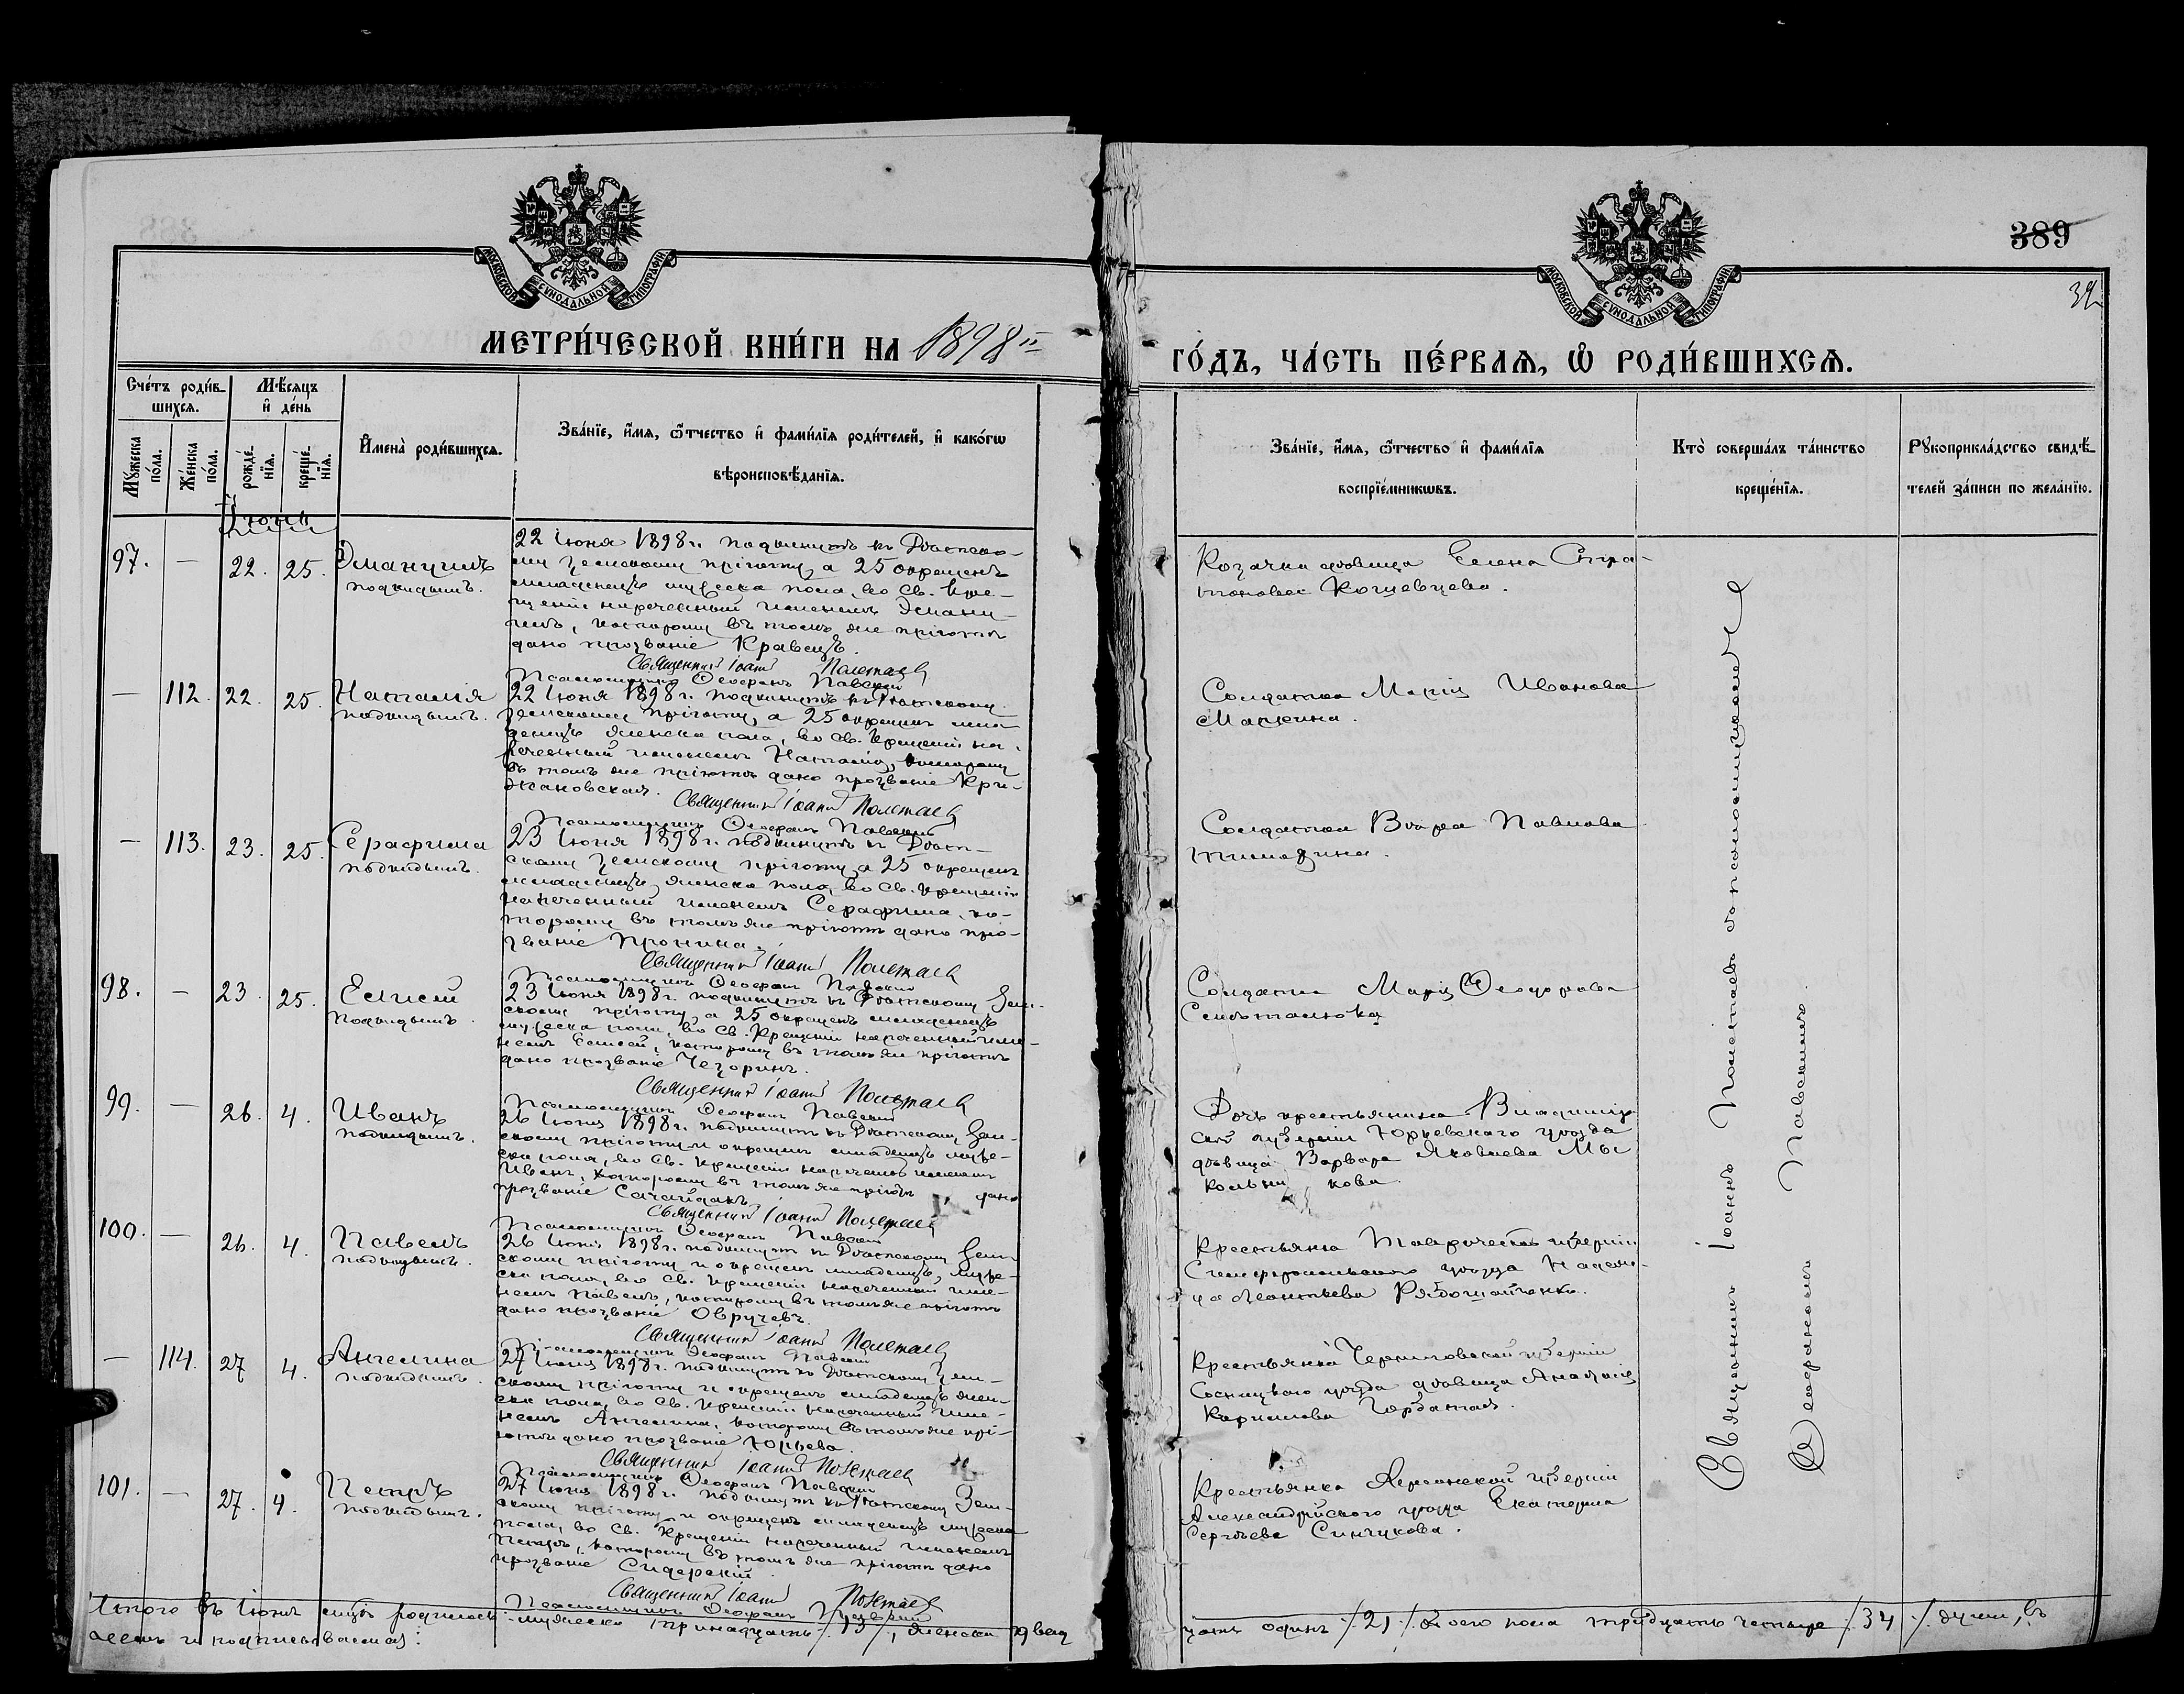 389
МОСКОВСКОЙ СѴНОДАЛЬНОЙ ТИПОГРАФІИ
МОСКОВСКОЙ СѴНОДАЛЬНОЙ ТИПОГРАФІИ
МЕТРИ́ЧЕСКОЙ КНИ́ГИ НА 1898й
ГО́ДЪ, ЧА́СТЬ ПЕ́РВАѦ, Ѡ РОДИ́ВШИХСѦ.
Сче́тъ роди́в-
шихсѧ.
Мѣ́сяцъ
и҆ де́нь
Мꙋ́жеска
по́ла.
Же́нска
по́ла.
рожде́-
нїѧ.
креще́-
нїѧ.
И҆мена̀ роди́вшихсѧ.
Зва́нїе, и҆́мѧ, ѻ҆́тчество и҆ фами́лїѧ роди́телей, и҆ како́гѡ
вѣроисповѣ́данїѧ.
Зва́нїе, и҆́мѧ, ѻ҆́тчество и҆ фами́лїѧ
воспрїе́мникѡвъ.
Кто̀ соверша́лъ та́инство
креще́нїѧ.
Рꙋкоприкла́дство свидѣ́-
телей за́писи по жела́нїю.
Іюнь
97. — 22. 25. Эмануилъ
подкидышъ.
22 Іюня 1898 г. подкинутъ къ Дѣтско-
му Земскому пріюту, а 25 окрещенъ
младенецъ мужеска пола, во Св. Кре-
щеніи нареченный именемъ Эману-
илъ, которому въ томъ же пріютѣ
дано прозваніе Кравецъ.
Священникъ Іоаннъ Полетаевъ
Псаломщикъ Ѳеофанъ Павскій
Козачка дѣвица Елена
Кошевцева.
— 112. 22. 25. Наталія
подкидышъ.
22 Іюня 1898 г. подкинутъ къ Дѣтскому
Земскому пріюту, а 25 окрещенъ мла-
денецъ женска пола, во Св. Крещеніи на-
реченный именемъ Наталія, которому
въ томъ же пріютѣ дано прозваніе Кри-
жановская.
Священникъ Іоаннъ Полетаевъ
Псаломщикъ Ѳеофанъ Павскій
Солдатка Марія Иванова
— 113. 23. 25. Серафима
подкидышъ.
23 Іюня 1898 г. подкинутъ къ Дѣт-
скому Земскому пріюту, а 25 окрещенъ
младенецъ, женска пола, во Св. Крещеніи
нареченный именемъ Серафима, ко-
торому въ томъ же пріютѣ дано про-
званіе Пронина.
Священникъ Іоаннъ Полетаевъ
Псаломщикъ Ѳеофанъ Павскій
Солдатка Вѣра Павлова
98. — 23. 25. Елисей
подкидышъ.
23 Іюня 1898 г. подкинутъ къ Дѣтскому Зем-
скому пріюту, а 25 окрещенъ младенецъ
мужеска пола, во Св. Крещеніи нареченный име-
немъ Елисей, которому въ томъ же пріютѣ
дано прозваніе Чезоринъ.
Священникъ Іоаннъ Полетаевъ
Псаломщикъ Ѳеофанъ Павскій
Солдатка Марія Ѳеодорова
99. — 26. 4. Иванъ
подкидышъ.
26 Іюня 1898 г. подкинутъ къ Дѣтскому Зем-
скому пріюту и окрещенъ младенецъ муже-
ска пола, во Св. Крещеніи нареченъ именемъ
Иванъ, которому въ томъ же пріютѣ дано
прозваніе Сагайдакъ.
Священникъ Іоаннъ Полетаевъ
Псаломщикъ Ѳеофанъ Павскій
Дочь крестьянина Владимір-
ской губерніи Юрьевскаго уѣзда
дѣвица Варвара Яковлева Мы
кова.
100. — 26. 4. Павелъ
подкидышъ.
26 Іюня 1898 г. подкинутъ къ Дѣтскому Зем-
скому пріюту и окрещенъ младенецъ, муже-
ска пола, во Св. Крещеніи нареченный име-
немъ Павелъ, которому въ томъ же пріютѣ
дано прозваніе Овручевъ.
Священникъ Іоаннъ Полетаевъ
Псаломщикъ Ѳеофанъ Павскій
Крестьянка Таврической губерніи
Симферопольскаго уѣзда
Леонтьева
— 114. 27 4. Ангелина
подкидышъ.
27 Іюня 1898 г. подкинутъ къ Дѣтскому Зем-
скому пріюту и окрещенъ младенецъ жен-
ска пола, во Св. Крещеніи нареченный име-
немъ Ангелина, которому въ томъ же прі-
ютѣ дано прозваніе Юрьева.
Священникъ Іоаннъ Полетаевъ
Псаломщикъ Ѳеофанъ Павскій
Крестьянка Черниговской губерніи
Сосницкаго уѣзда дѣвица Анастасія
Кирилова Горбатая.
101. — 27. 4. Петръ
подкидышъ.
27 Іюня 1898 г. подкинутъ къ Дѣтскому Зем-
скому пріюту и окрещенъ младенецъ мужеска
пола, во Св. Крещеніи нареченный именемъ
Петръ, которому въ томъ же пріютѣ дано
прозваніе Сидерскій.
Священникъ Іоаннъ Полетаевъ
Псаломщикъ Ѳеофанъ Павскій
Крестьянка Херсонской губерніи
Александрійскаго уѣзда Екатерина
Сергѣева Синчукова.
Священникъ Іоаннъ Полетаевъ съ псаломщикомъ
Ѳеофаномъ Павскимъ.
Итого въ Іюнѣ мѣсяцѣ родилось мужеска тринадцать /13/, женска двад
цать одинъ /21/ обоего пола тридцать четыре /34/ души, въ
чемъ и подписываемся: